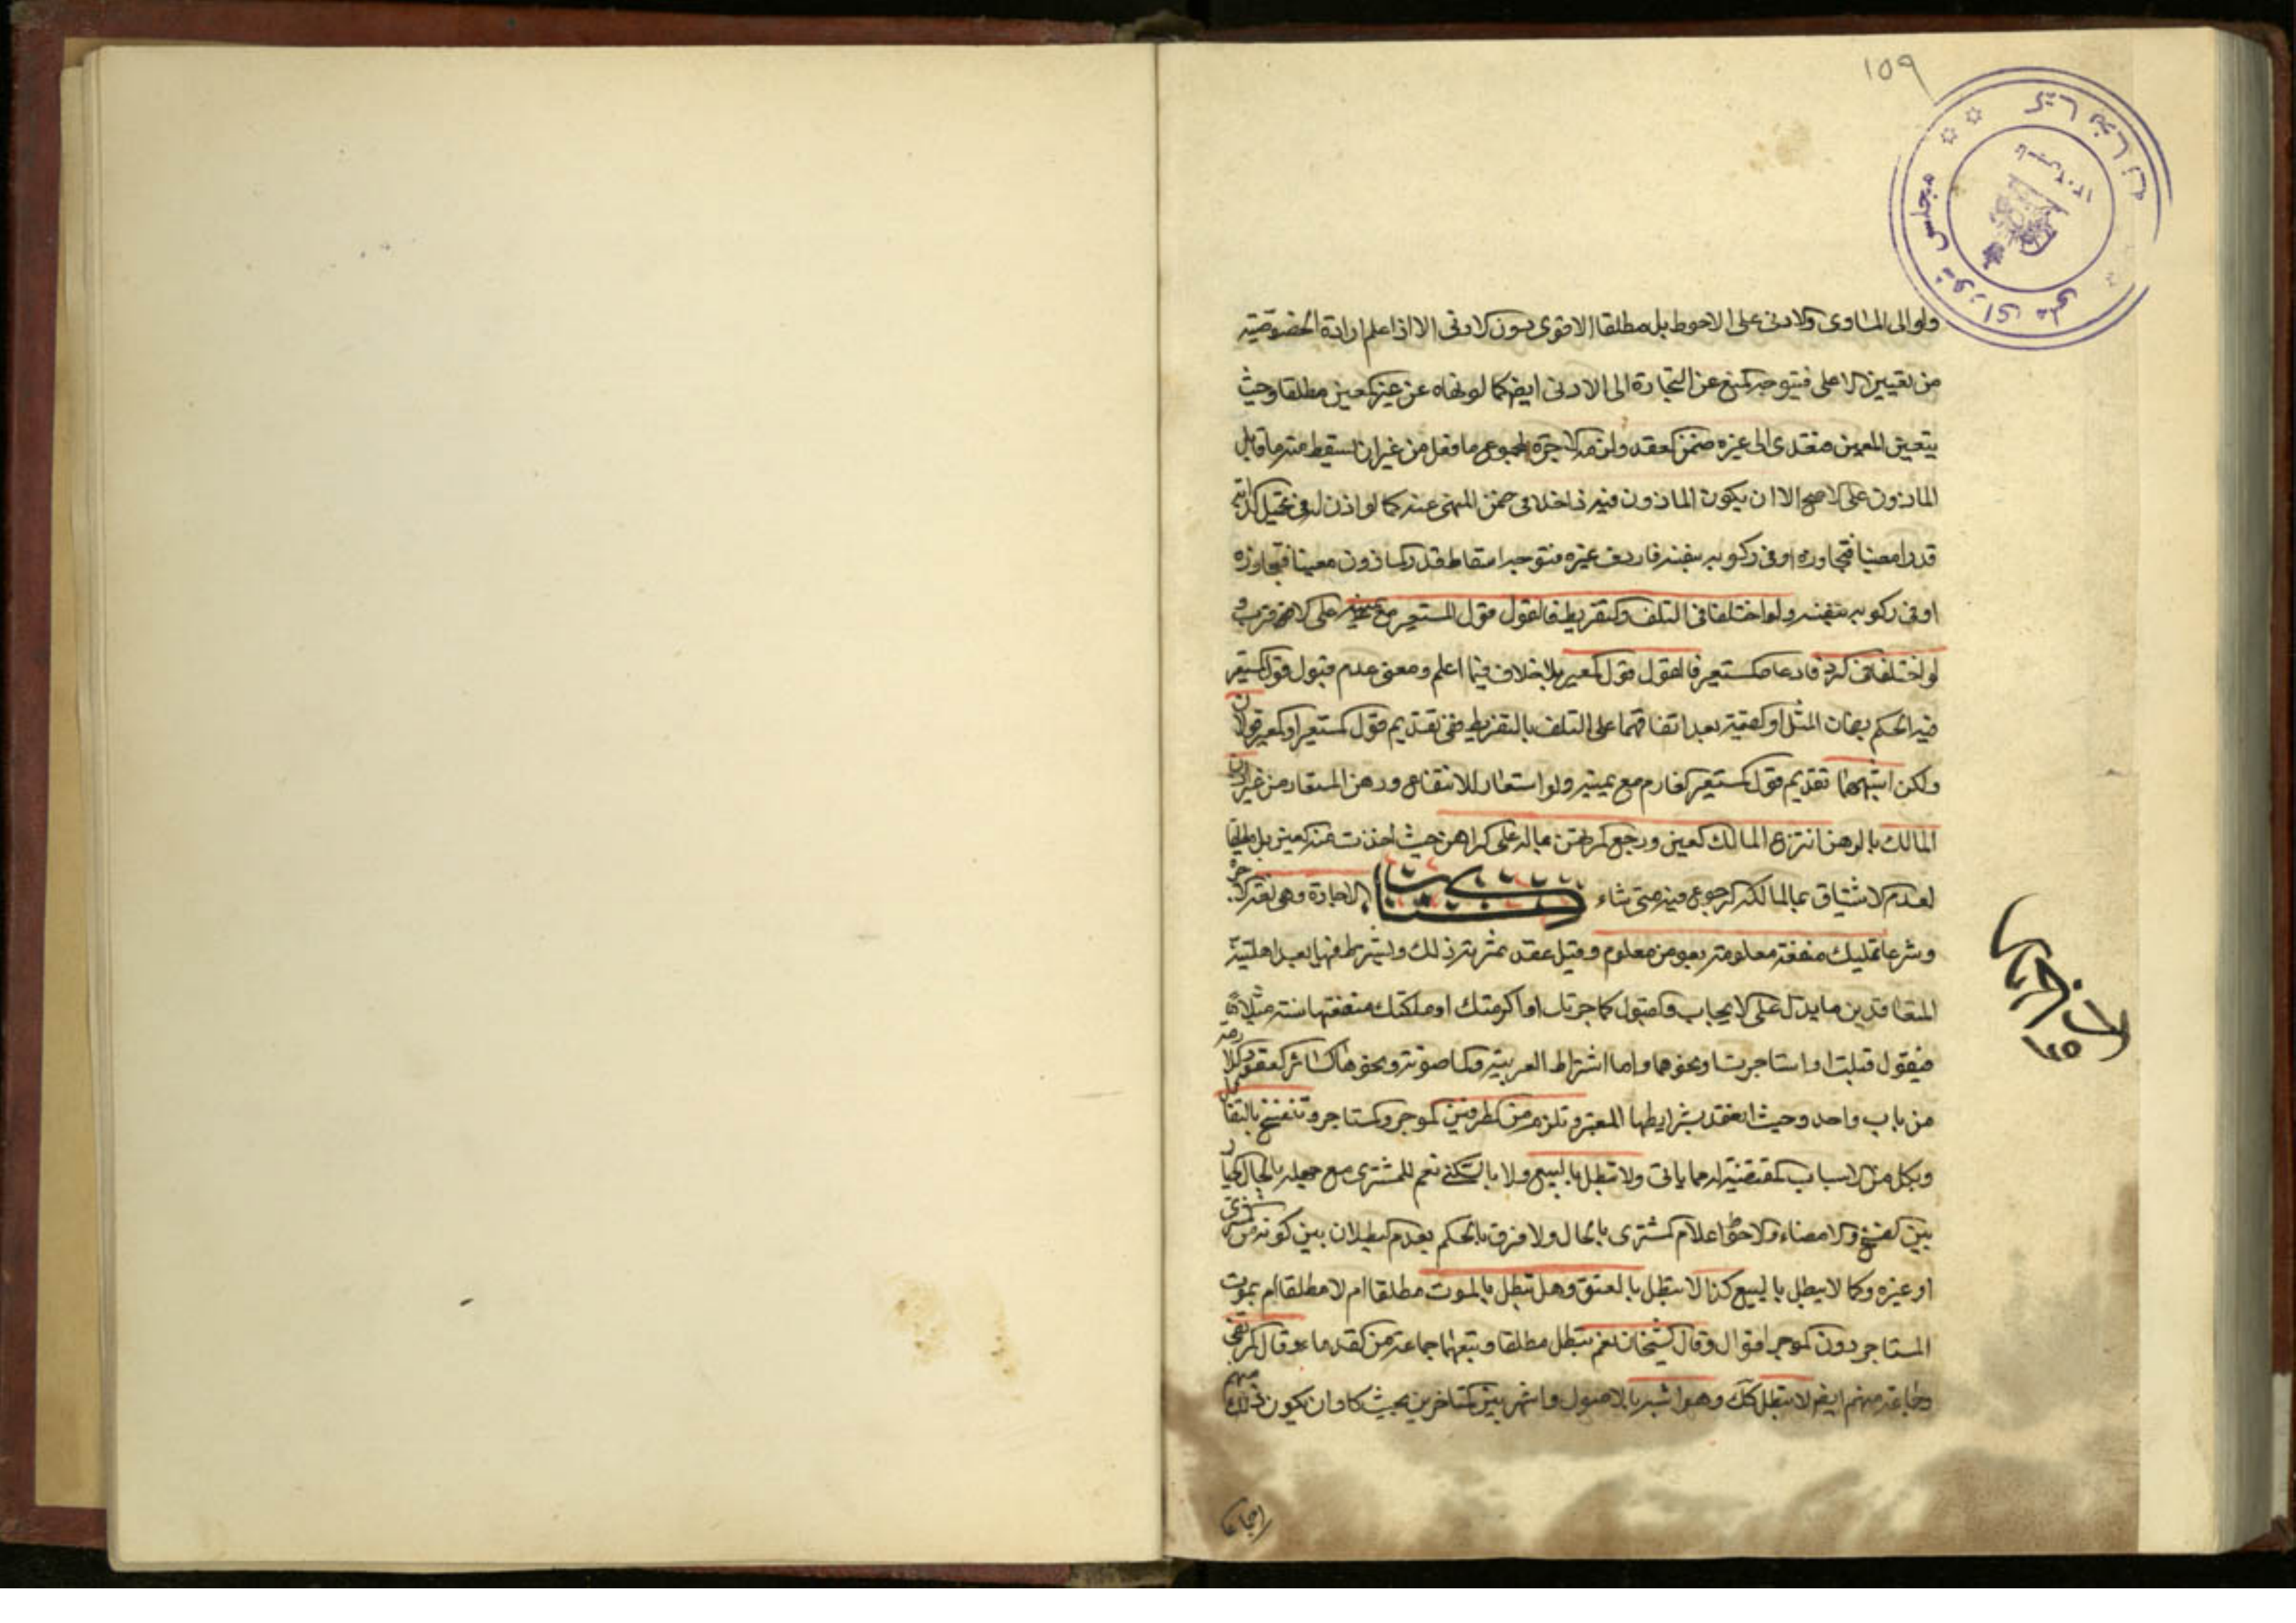 ١٥٩
کتابخانه مجلس شورای ملی
تاسیس ١٣٠٢
ولو الى المساوى والادنى على الاحوط بل مطلقا الاقوى دون الادنى الا اذا علم ارادة الخصوصية
من تعيين الاعلى فيتوجه المنع عن التجارة الى الادنى ايضا كما لو نهاه عن غير المعين مطلقا وحيث
يتعين المعين فتعدى الى غيره ضمن العقد ولزمه الاجرة لمجموع ما فعل من غير ان تسقط منه ما قابل
الماذون على الاصح الا ان يكون الماذون فيه داخلا فى ضمن المنهى عنه كما لو اذن له فى تحميل الدابة
قدرا معينا فتجاوزه او فى ركوبه بنفسه فاردف غيره فتوجه اسقاط قدر الماذون معينا فتجاوزه
او فى ركوبه بنفسه ولو اختلفا فى التلف والتفريط فالقول قول المستعير مع يمينه على الاصح
لو اختلفا فى الرد فادعاه المستعير فالقول قول المعير بلا خلاف فيما اعلم ومعنى عدم قبول قول المستعير
فيه الحكم بضمان المثل او القيمة بعد اتفاقهما على التلف بالتفريط ففى تقديم قول المستعير او المعير قولان
ولكن اشبههما تقديم قول المستعير الغارم مع يمينه ولو استعار للانتفاع ورهن المستعار من غير اذن
المالك بالرهن انتزع المالك العين ورجع المرتهن بماله على الراهن حيث اخذت منه العين بل مطلقا
لعدم الاستيثاق بما لمالكه الرجوع فيه متى شاء كتاب الاجارة وهى لغة الاجرة
وشرعا تمليك منفعة معلومة بعوض معلوم وقيل عقد ثمرته ذلك ويشترط فيها بعد اهلية
المتعاقدين ما يدل على الايجاب والقبول كاجرتك او اكريتك او ملكتك منفعتها سنة مثلا
فيقول قبلت او استاجرت ونحوهما واما اشتراط العربية والماضوية ونحوها كسائر العقود اللازمة
من باب واحد وحيث انعقد بشرايطها المعتبرة تلزم من الطرفين الموجر والمستاجر وتنفسخ بالتقايل
وبكل من الاسباب المقتضية له مما ياتى ولا تبطل بالبيع ولا بالسكنى نعم للمشترى مع جهله بالحال الخيار
بين الفسخ والامضاء والاحوط اعلام المشترى بالحال ولا فرق بالحكم بعدم البطلان بين كونه من المشترى
او غيره وكما لا يبطل بالبيع كذا لا تبطل بالعتق وهل تبطل بالموت مطلقا ام لا مطلقا ام بموت
المستاجر دون الموجر اقوال وقال الشيخان نعم تبطل مطلقا وتبعهما جماعة من القدماء وقال المرتضى
وجماعة منهم ايضا لا تبطل كك وهو اشبه بالاصول واشهر بين المتاخرين بحيث كاد ان يكون ذلك منهم
اجماعا
الاجارة